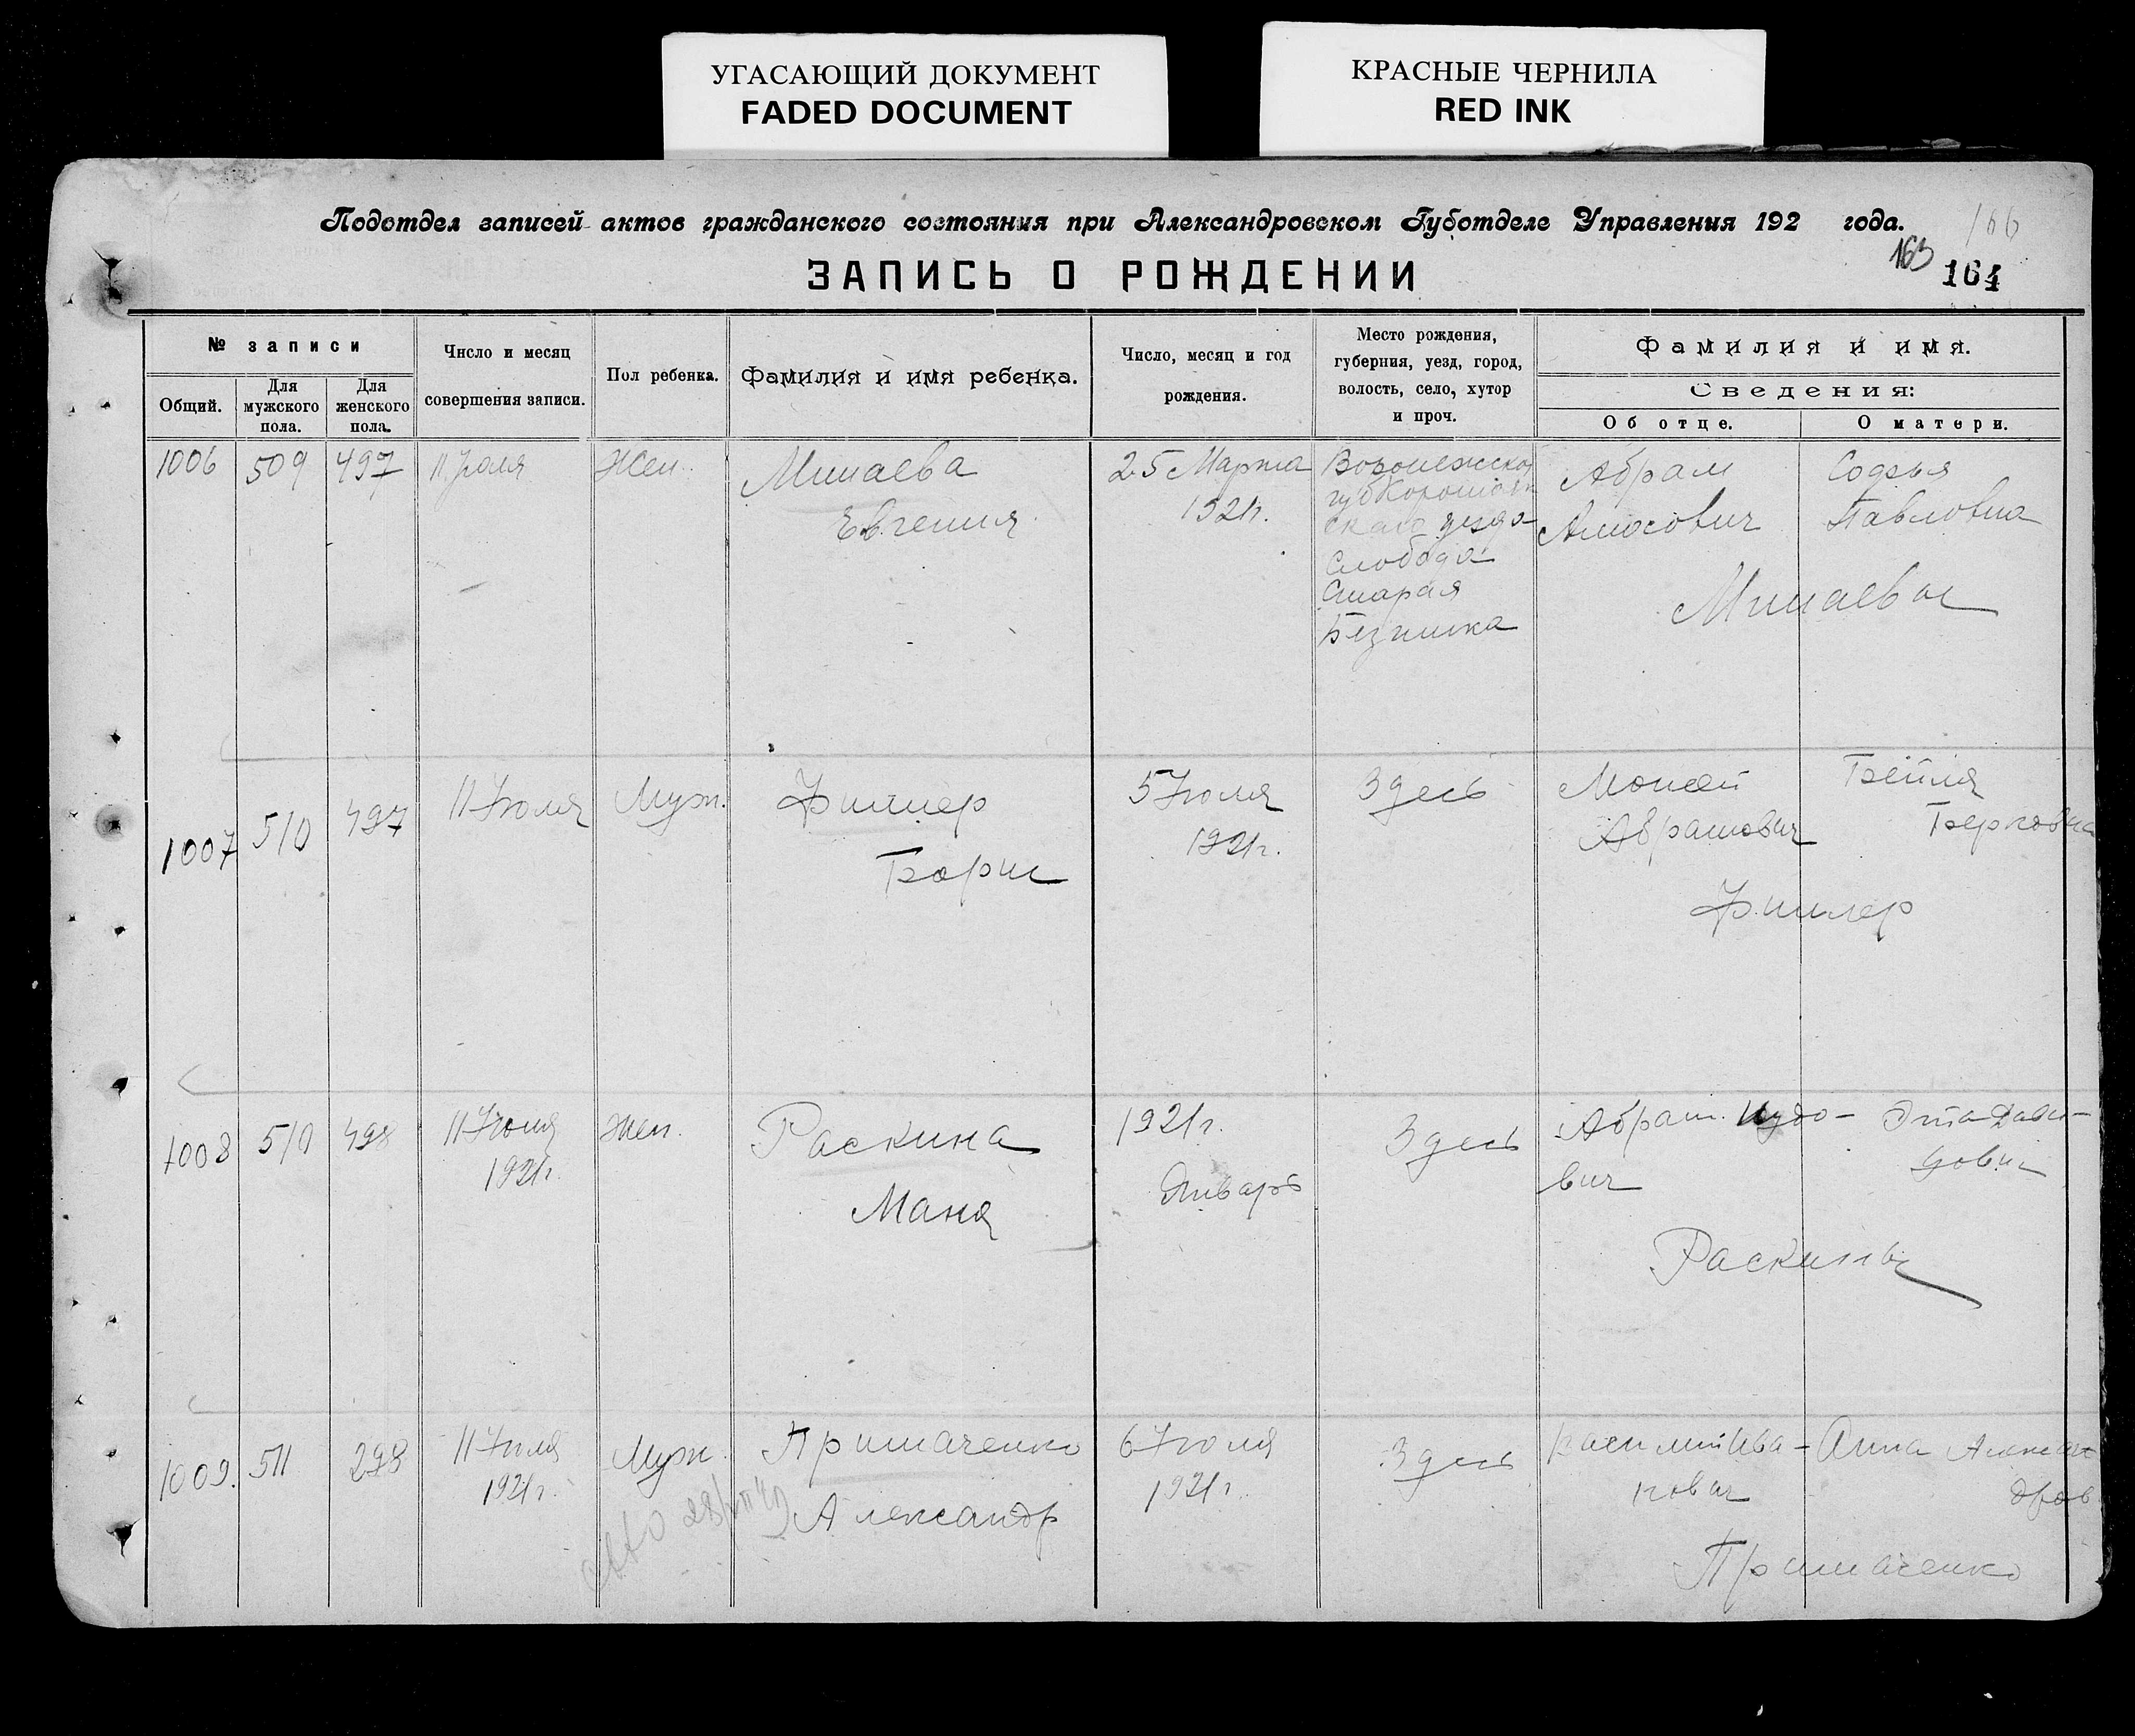 УГАСАЮЩИЙ ДОКУМЕНТ
FADED DOCUMENT
КРАСНЫЕ ЧЕРНИЛА
RED INK
Подотдел записей актов гражданского состояния при Александровском Губотделе Управления 192 года.
166
163
164
ЗАПИСЬ О РОЖДЕНИИ
№ записи
Общий.
Для
мужского
пола.
Для
женского
пола.
Число и месяц
совершения записи.
Пол ребенка.
Фамилия и имя ребенка.
Число, месяц и год
рождения.
Место рождения,
губерния, уезд, город,
волость, село, хутор
и проч.
Фамилия и имя.
Сведения:
Об отце.
О матери.
1006
509
497
11 Июля
Жен.
Минаева
Евгения
25 Марта
1921г.
Воронежской
губ
уезда
Слобода
Старая
Абрам
Амосович
Софья
Павловна
Минаевы
1007
510
497
11 Июля
Муж.
Фишер
Борис
5 Июля
1921г.
Здесь
Моисей
Абрамович
Бейля
Берковна
Фишер
1008
510
498
11 Июля
1921г.
Жен.
Раскина
Маня
1921г.
Январь
Здесь
Абрам Иудо-
вич
Эта Дави-
дович
Раскины
1009.
511
298
11 Июля
1921г.
Муж.
Примаченко
Александр
6 Июля
1921г.
Здесь
Василий Ива-
нович
Анна Алексан
дров
Примаченко